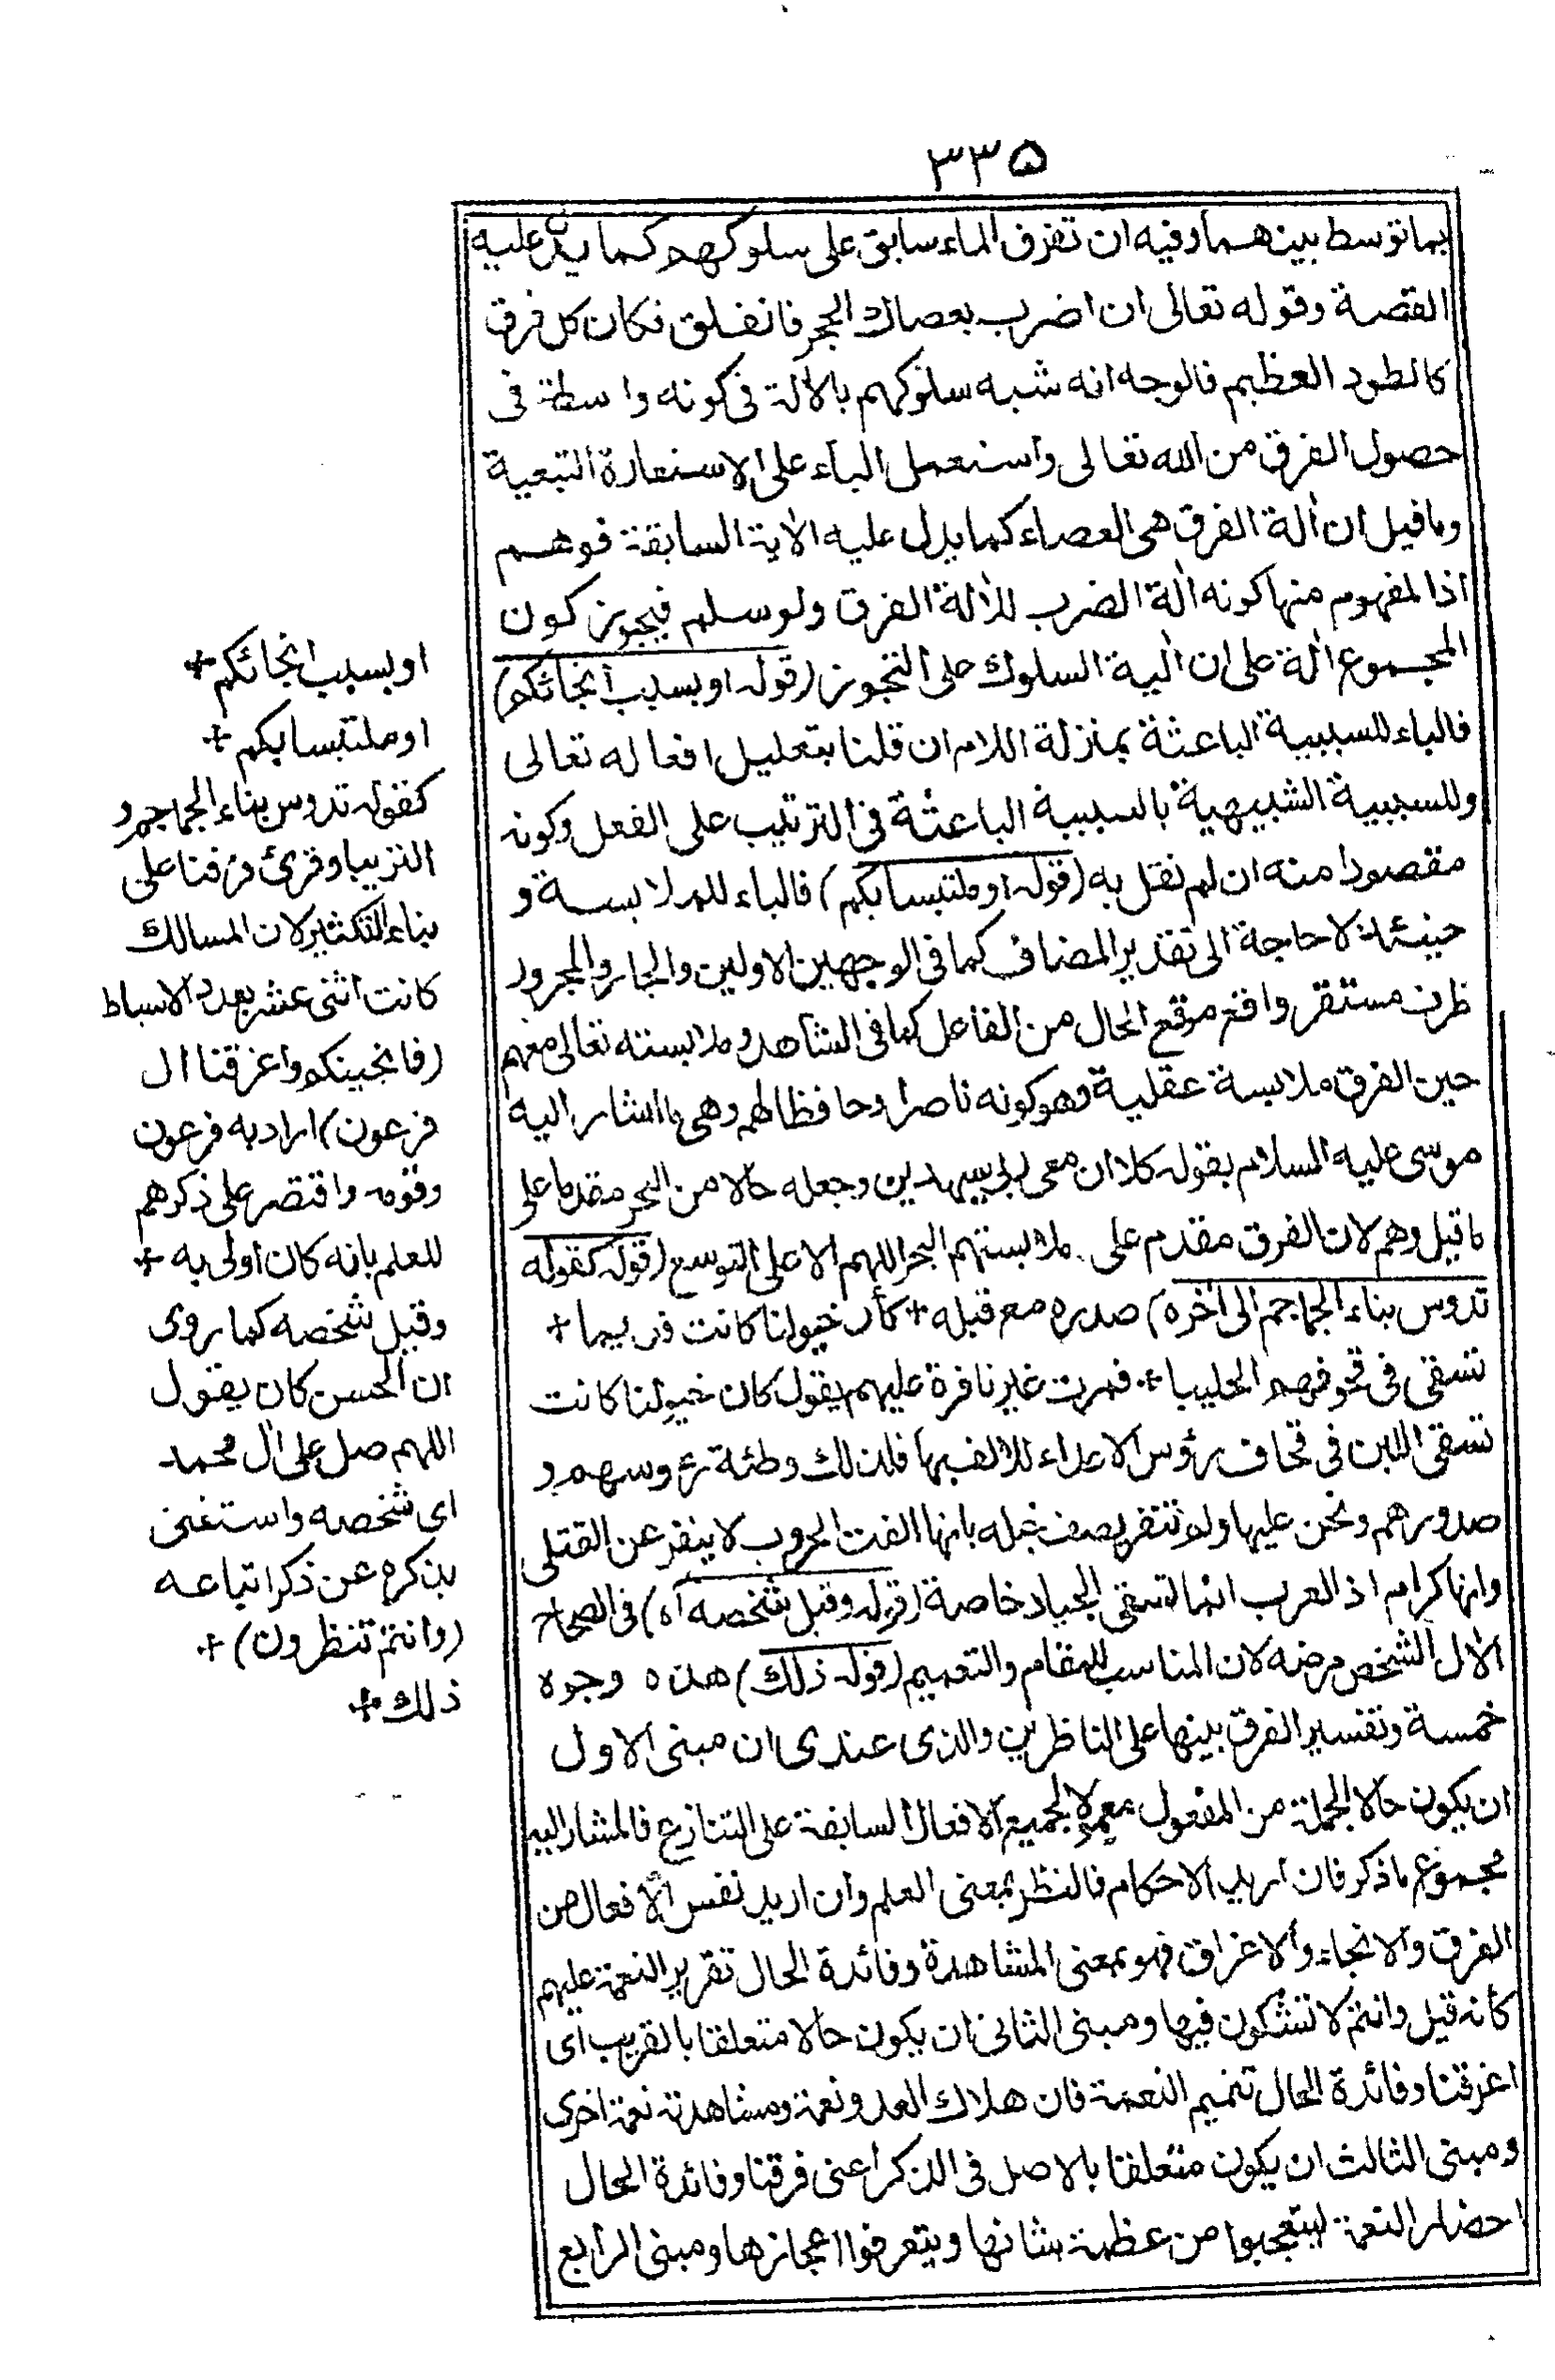 ٣٣٥
بما توسط بينهما وفيه ان تفرق الماء سابق على سلوكهم كما يدل عليه
القصة وقوله تعالى ان اضرب بعصاك البحر فانفلق فكان كل فرق
كالطود العظيم فالوجه انه شبه سلوكهم بالآلة فى كونه واسطة فى
حصول الفرق من الله تعالى واستعمل الباء على الاستعارة التبعية
وما قيل ان آلة الفرق هى العصاء كما يدل عليه الآية السابقة فوهم
اذ المفهوم منها كونه آلة الضرب لا آلة الفرق ولو سلم فيجوز كون
المجموع آلة على ان آلية السلوك على التجوز (قوله او بسبب انجائكم)
فالباء للسببية الباعثة بمنزلة اللام ان قلنا بتعليل افعاله تعالى
وللسببية الشبيهية بالسببية الباعثة فى الترتيب على الفعل وكونه
مقصودا منه ان لم نقل به (قوله او ملتبسا بكم) فالباء للملابسة و
حينئذ لا حاجة الى تقدير المضاف كما فى الوجهين الاولين والجار والمجرور
ظرف مستقر واقع موقع الحال من الفاعل كما فى الشاهد وملابسته تعالى معهم
حين الفرق ملابسة عقلية وهو كونه ناصرا وحافظا لهم وهى ما اشار اليه
موسى عليه السلام بقوله كلا ان معى ربى سيهدين وجعله حالا من البحر مقدما على
ما قيل وهم لان الفرق مقدم على ملابستهم البحر اللهم الا على التوسع (قوله كقوله
تدوس بناء الجماجم الى آخره) صدره مع قبله + كأن خيولنا كانت قديما +
تسقى فى قحوفهم الحليبا + فمرت غير نافرة عليهم يقول كان خيولنا كانت
تسقى اللبن فى قحاف رؤس الاعداء للالف بها فلذلك وطئة رءوسهم و
صدورهم ونحن عليها ولم تنفر يصف خيله بانها الفت الحروب لا ينفر عن القتلى
وانها كرام اذ العرب انما تسقى الجياد خاصة (قوله وقيل شخصه آه) فى الصحاح
الآل الشخص مرضه لان المناسب للمقام والتعميم (قوله ذلك) هذه وجوه
خمسة وتفسير الفرق بينها على الناظرين والذى عندى ان مبنى الاول
ان يكون حالا لجملة من المفعول معمولا لجميع الافعال السابقة على التنازع فالمشار اليه
مجموع ما ذكر فان اريد الاحكام فالنظر بمعنى العلم وان اريد نفس الافعال من
الفرق والانجاء والاغراق فهو بمعنى المشاهدة وفائدة الحال تقرير النعمة عليهم
كأنه قيل وانتم لا تشكون فيها ومبنى الثانى ان يكون حالا متعلقا بالقريب اى
اغرقنا وفائدة الحال تتميم النعمة فان هلاك العدو نعمة ومشاهدته نعمة اخرى
ومبنى الثالث ان يكون متعلقا بالاصل فى الذكر اعنى فرقنا وفائدة الحال
احضار النعمة ليتعجبوا من عظمة شانها ويتعرفوا اعجازها ومبنى الرابع
او بسبب انجائكم +
او ملتبسا بكم +
كقوله تدوس بناء الجماجم و
التريبا وقرئ فرقنا على
بناء التكثير لان المسالك
كانت اثنى عشر بعدد الاسباط
(فانجينكم واغرقنا ال
فرعون) اراد به فرعون
وقومه واقتصر على ذكرهم
للعلم بانه كان اولى به +
وقيل شخصه كما روى
ان الحسن كان يقول
اللهم صل على ال محمد
اى شخصه واستغنى
بذكره عن ذكر اتباعه
(وانتم تنظرون) +
ذلك +